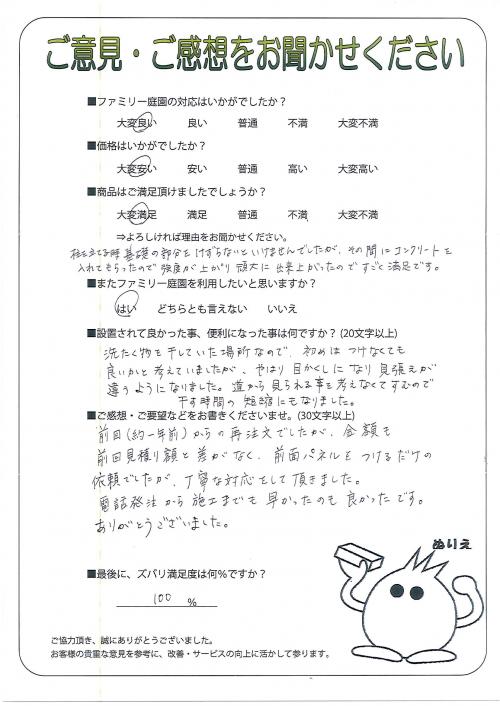 ご意見・ご感想をお聞かせください
■ファミリー庭園の対応はいかがでしたか？
大変良い 良い 普通 不満 大変不満
■価格はいかがでしたか？
大変安い 安い 普通 高い 大変高い
■商品はご満足頂けましたでしょうか？
大変満足 満足 普通 不満 大変不満
⇒よろしければ理由をお聞かせください。
柱を立てる時基礎の部分をけずらないといけませんでしたが、その間にコンクリートを
入れてもらったので強度が上がり頑丈に出来上がったのですごく満足です。
■またファミリー庭園を利用したいと思いますか？
はい どちらとも言えない いいえ
■設置されて良かった事、便利になった事は何ですか？(20文字以上)
洗たく物を干していた場所なので、初めはつけなくても
良いかと考えていましたが、やはり目かくしになり見張えが
違うようになりました。道から見られる事を考えなくてすむので
干す時間の短縮にもなりました。
■ご感想・ご要望などをお書きくださいませ。(30文字以上)
前回(約一年前)からの再注文でしたが、金額も
前回見積り額と差がなく、前面パネルをつけるだけの
依頼でしたが、丁寧な対応をして頂きました。
電話発注から施工までも早かったのも良かったです。
ありがとうございました。
ぬりえ
■最後に、ズバリ満足度は何％ですか？
100 %
ご協力頂き、誠にありがとうございました。
お客様の貴重な意見を参考に、改善・サービスの向上に活かして参ります。